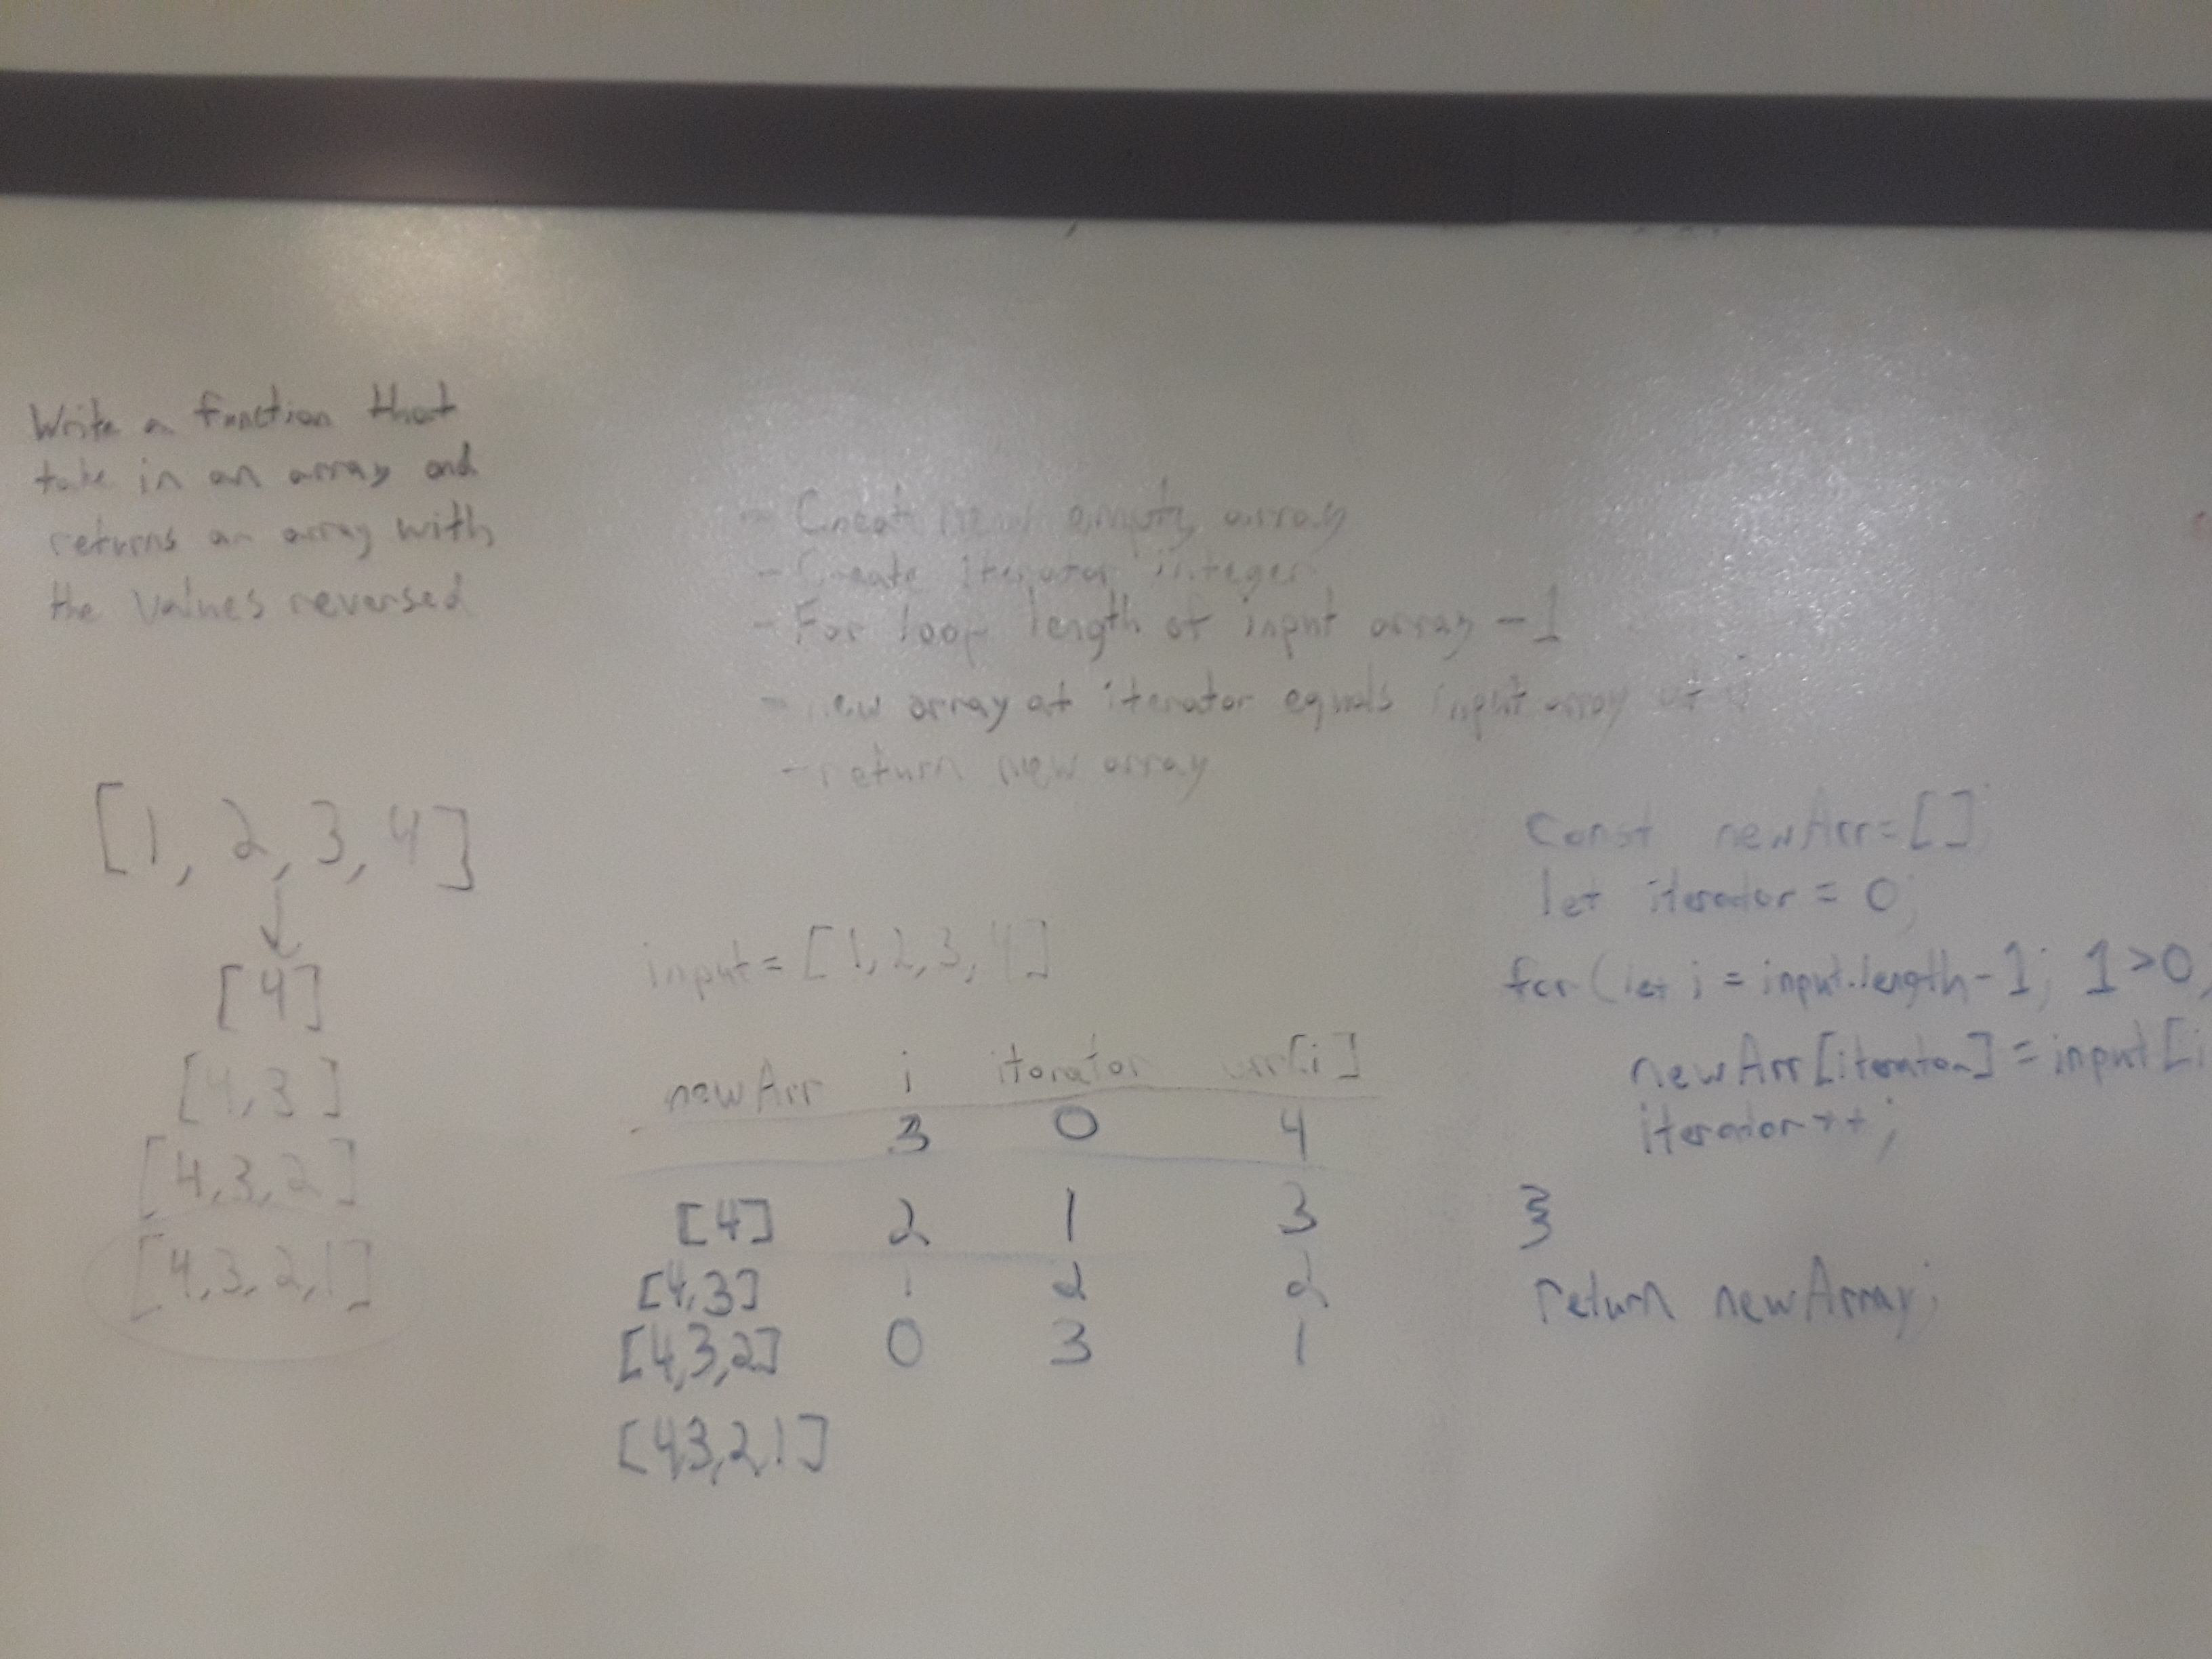 Write a function that
take in an array and
returns an array with
the values reversed
[1, 2, 3, 4]
[4]
[4,3]
[4,3,2]
[4,3,2,1]
- Creat new empty array
- Create iterator integer
- For loop length of input array -1
- new array at iterator equals input array at i
- return new array
input = [1,2,3,4]
newArr i iterator arr[i]
3 0 4
[4] 2 1 3
[4,3] 1 2 2
[4,3,2] 0 3 1
[4,3,2,1]
Const newArr = []
let iterator = 0;
for (let i = input.length-1; 1>0;
newArr[iterator] = input[i
iterator++;
}
return newArray;